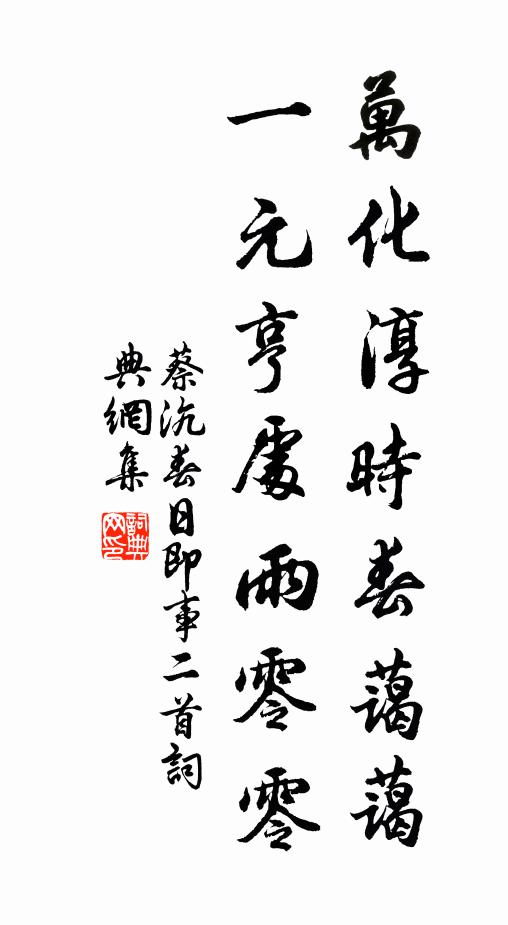 萬化淳時春藹藹
一元亨處雨零零
蔡沉春日即事二首詞
典網集
詞典網印